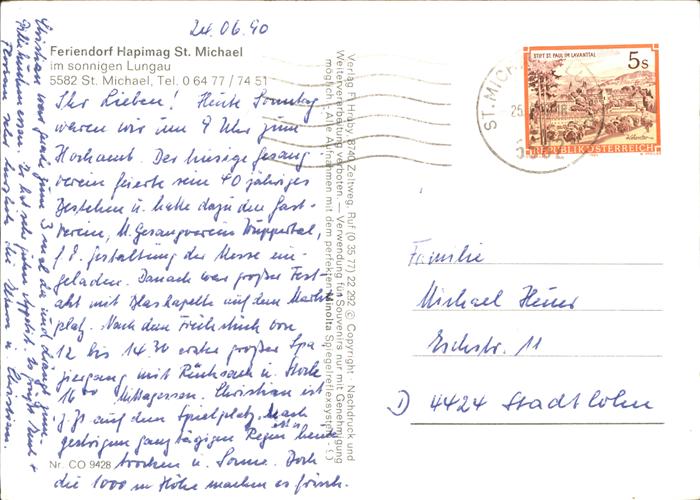 24.06.90
Feriendorf Hapimag St. Michael
im sonnigen Lungau
5582 St. Michael, Tel. 0 64 77 / 74 51
Ihr Lieben! Heute Sonntag
waren wir um 9 Uhr zum
Hochamt. Der hiesige Gesang-
verein feierte sein 40 jähriges
Bestehen u. hatte dazu den Gast-
verein, M. Gesangverein Wuppertal,
z. B. Gestaltung der Messe ein-
geladen. Danach war großer Fest-
akt mit Blaskapelle auf dem Markt-
platz. Nach dem Frühstück von
12 bis 14.30 erster großer Spa
ziergang mit Rucksack u. Stock
16 00 Mittagessen. Christian ist
z. Zt auf dem Spielplatz. Nach
gestrigem ganztägigen Regen ist es heute
trocken u. Sonne. Doch
die 1000 m Höhe machen es frisch.
Nr. CO 9428
Christian war zum 3 mal da und drängt zum
essen. Er hat sehr guten Appetit. Es grüßt Euch +
sehr herzlich die u. Christian.
Verlag F. Hruby, 8740 Zeltweg, Ruf (0 35 77) 22 292 © Copyright - Nachdruck und
Weiterverarbeitung verboten. — Verwendung für Souvenirs nur mit Genehmigung
möglich - Alle Aufnahmen mit dem perfekten Minolta Spiegelreflexsystem
STIFT ST. PAUL IM LAVANTTAL
5 S
REPUBLIK ÖSTERREICH
ST. MICH
25.
5582
Familie
Michael
Eschstr. 11
D 4424 Stadtlohn